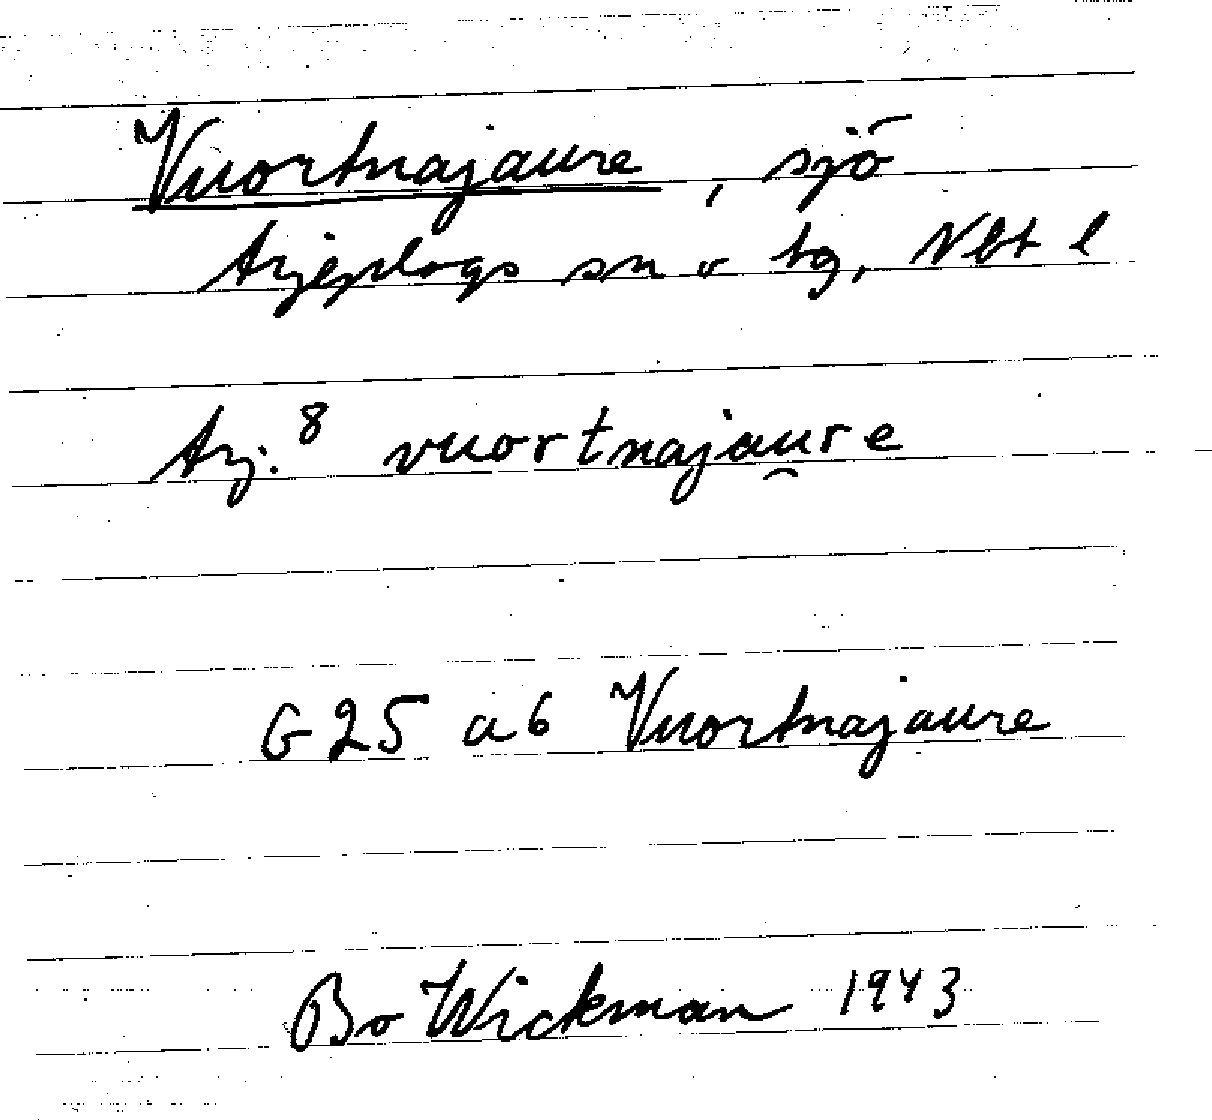 Vuortnajaure, sjö
Arjeplogs sn o tg, Nbt l
Arj.⁸ vuortnajau̯re
G 25 a6 Vuortnajaure
Bo Wickman 1943